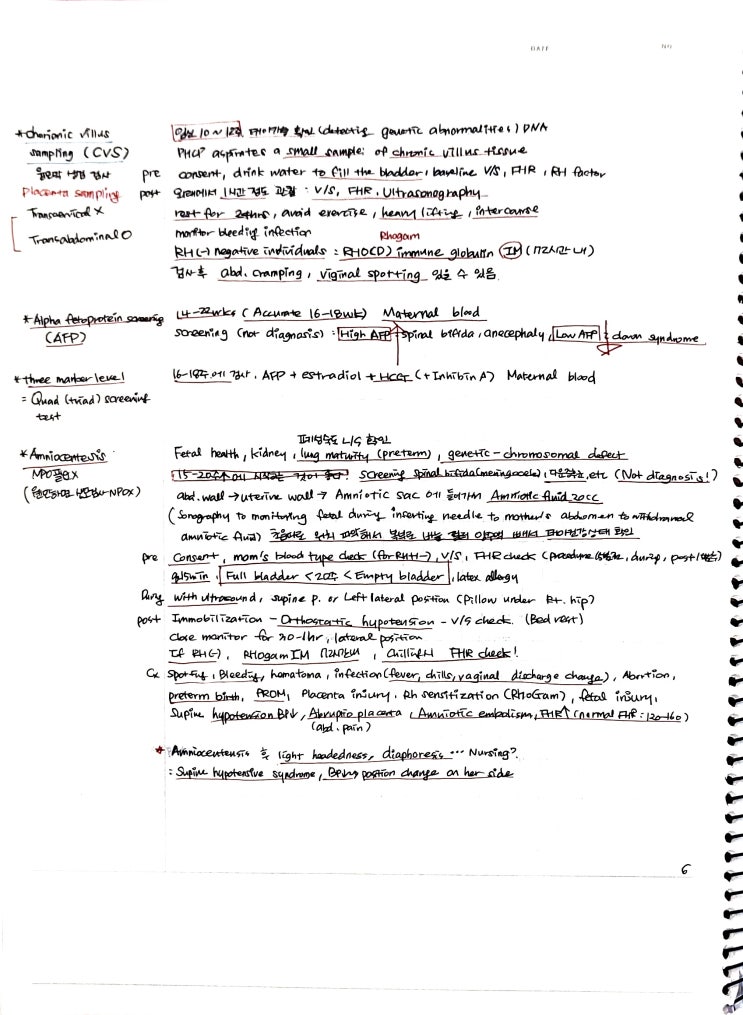 DATE NO
*Chorionic villus 임신 10~12주 태아기형 확인 (detecting genetic abnormalities) DNA
sampling (CVS) PHCP aspirates a small sample of chronic villus tissue
융모막 생검 검사 pre consent, drink water to fill the bladder, baseline V/S, FHR, RH factor
Placenta sampling post 외래에서 1시간 정도 관찰 : V/S, FHR, Ultrasonography
Transcervical X rest for 24hrs, avoid exercise, heavy lifting, intercourse
Transabdominal O monitor bleeding infection Rhogam
RH(-) negative individuals = RHO(D) immune globulin (IM) (72시간 내)
검사후 abd. cramping, viginal spotting 있을 수 있음
*Alpha fetoprotein screening 14-22wks (Accurate 16-18wk) Maternal blood
(AFP) screening (not diagnosis) : High AFP↑ spinal bifida, anecephaly, Low AFP↓ : down syndrome
*three marker level 16-18주에 검사. AFP + estradiol + HCG (+Inhibin A) Maternal blood
= Quad (triad) screening
test
폐성숙도 L/S 확인
*Amniocentesis Fetal health, kidney, lung maturity (preterm), genetic-chromosomal defect
NPO필요X 15-20주에 screening spinal bifida(meningocele), 다운증후, etc (Not diagnosis!)
abd. wall → uterine wall → Amniotic sac 에 들어가서 Amniotic fluid 20cc
(Sonography to monitoring fetal during inserting needle to mother's abdomen to withdrawal
amniotic fluid) 초음파로 위치 파악해서
pre Consent, mom's blood type check (for RH(-)), V/S, FHR check (procedure, during, post)
q15min, Full bladder < 20주 < Empty bladder, latex allergy
During with ultrasound, supine p. or Left lateral position (Pillow under Rt. hip)
post Immobilization - Orthostatic hypotension - V/S check. (Bed rest)
Close monitor for 30-1hr, lateral position
If RH(-), RHogam IM 72시간내, FHR check!
Cx Spotting, Bleeding, hematoma, infection (fever, chills, vaginal discharge change), Abortion,
preterm birth, PROM, Placenta injury, Rh sensitization (RHoGam), fetal injury,
Supine hypotension BP↓, Abruptio placenta, Amniotic embolism, FHR↑ (normal FHR : 120-160)
(abd. pain)
* Amniocentesis 후 light headedness, diaphoresis ... Nursing?
: Supine hypotensive syndrome, position change on her side
6